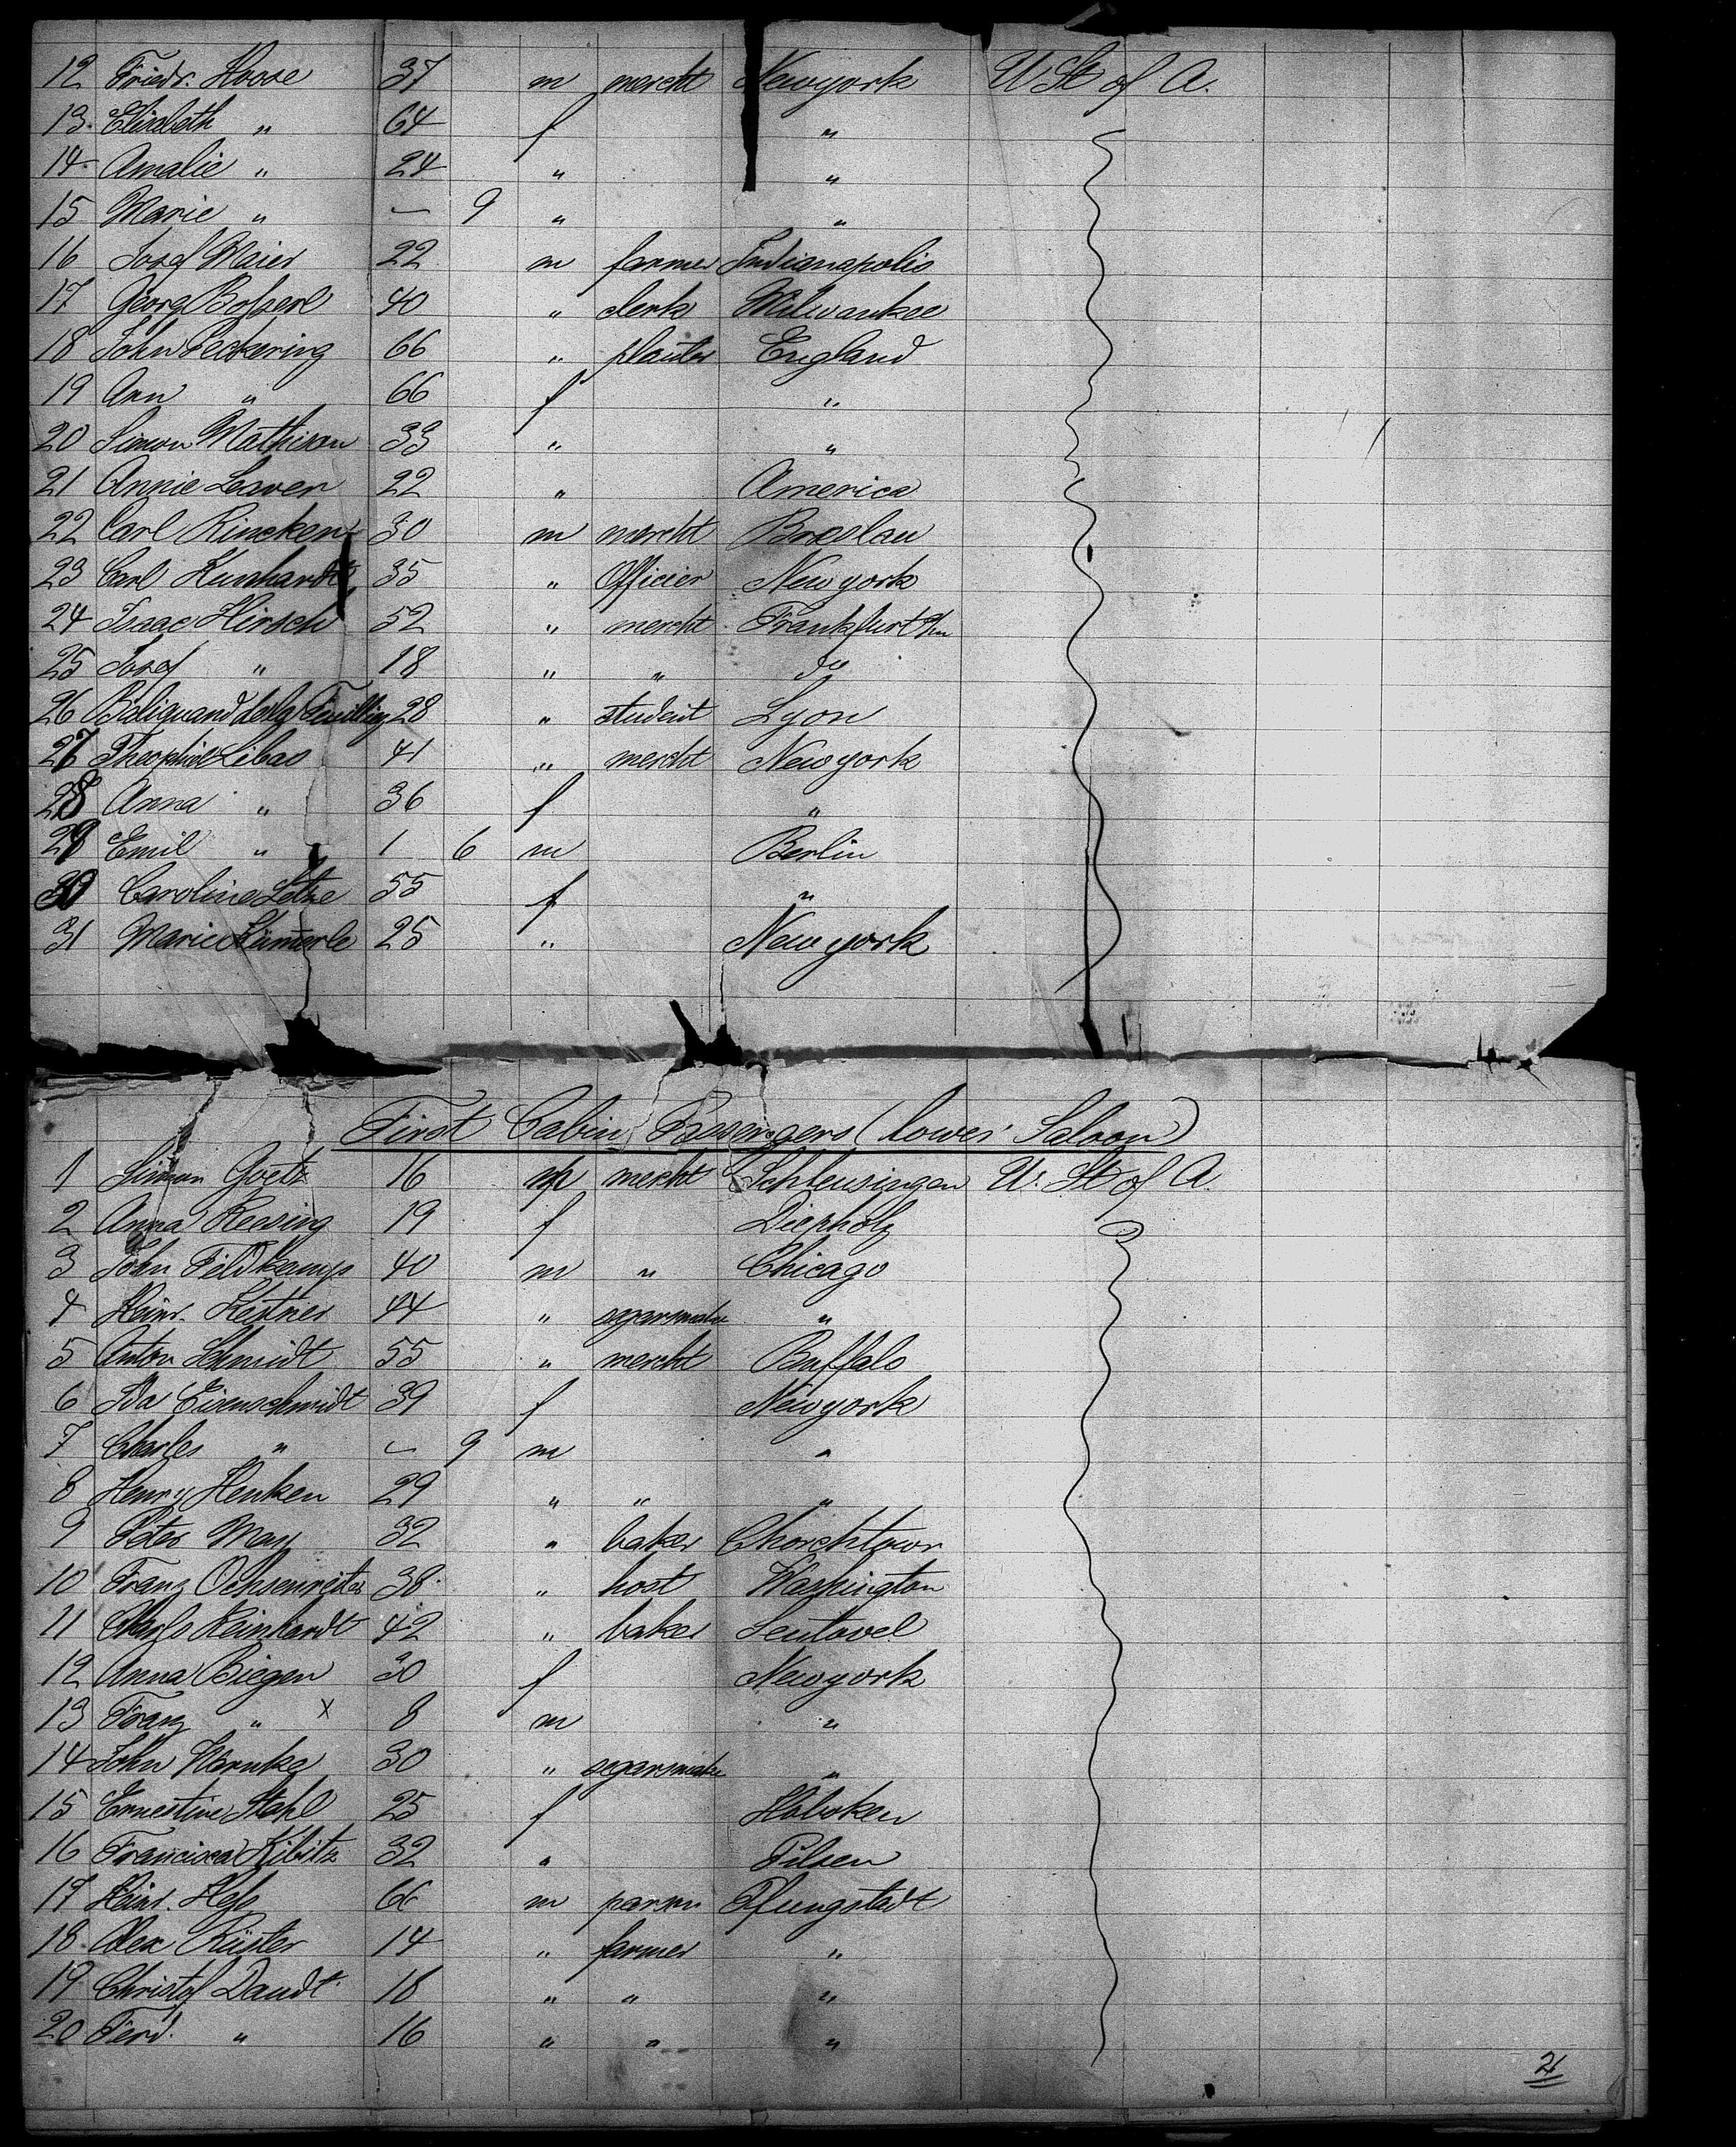 12 Friedr. Hoose 37 m mercht Newyork U St of A.
13. Elisabeth " 64 f "
14. Amalie " 24 " "
15 Marie " — 9 " "
16 Josef Maier 22 m farmer Indianapolis
17 Georg 40 " clerk Milwaukee
18 John Peckering 66 " planter England
19 Ann " 66 f "
20 Simon Mathison 33 " "
21 Annie Leaver 22 " America
22 Carl Rincken 30 m mercht Breslau
23 Carl Kunhardt 35 " Officier New york
24 Isaac Hirsch 52 " mercht Frankfurt a/m
25 Josef " 18 " " do
26 Baliguand de la 28 " student Lyon
27 Theophiel Libas 41 " mercht Newyork
28 Anna " 36 f "
29 Emil " 1 6 m Berlin
30 Caroline 55 f "
31 Marie Kümerle 25 " New york
First Cabin Passengers (lower Saloon)
1 Simon Goetz 16 m mercht Schleusingen U. St of A.
2 Anna Reesing 19 f Diepholz
3 John Feldkamp 40 m " Chicago
4 Heinr. Kestner 44 " segarmaker "
5 Anton Schmidt 55 " mercht Buffalo
6 Ida Eisenschmidt 39 f Newyork
7 Charles " — 9 m "
8 Henry Henken 29 " " "
9 Peter May 32 " baker Chorchtown
10 Franz Ochsenreiter 38. " host Washington
11 Charls Reinhardt 42 " baker Sentovel
12 Anna Biegen 30 f Newyork
13 Franz " x 8 m "
14 John Warnke 30 " segarmaker "
15 Ernestine Stahl 25 f Hoboken
16 Francisca Kibitz 32 " Pilsen
17 Heinr. Hess 66 m Pfungstadt
18 Alex Küster 14 " farmer "
19 Christof Daudt 18 " " "
20 Ferd. " 16 " " "